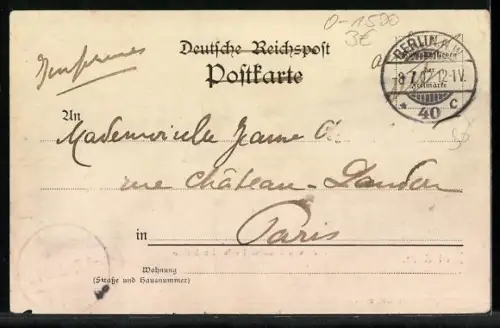 0-1500
3€
Imprimés
Deutsche Reichspost
Postkarte
BERLIN N.W.
der
Freimarke
12-1V.
* 40 c
An
Mademoiselle Jeanne
rue Château-Landon
in Paris
Wohnung
(Straße und Hausnummer)